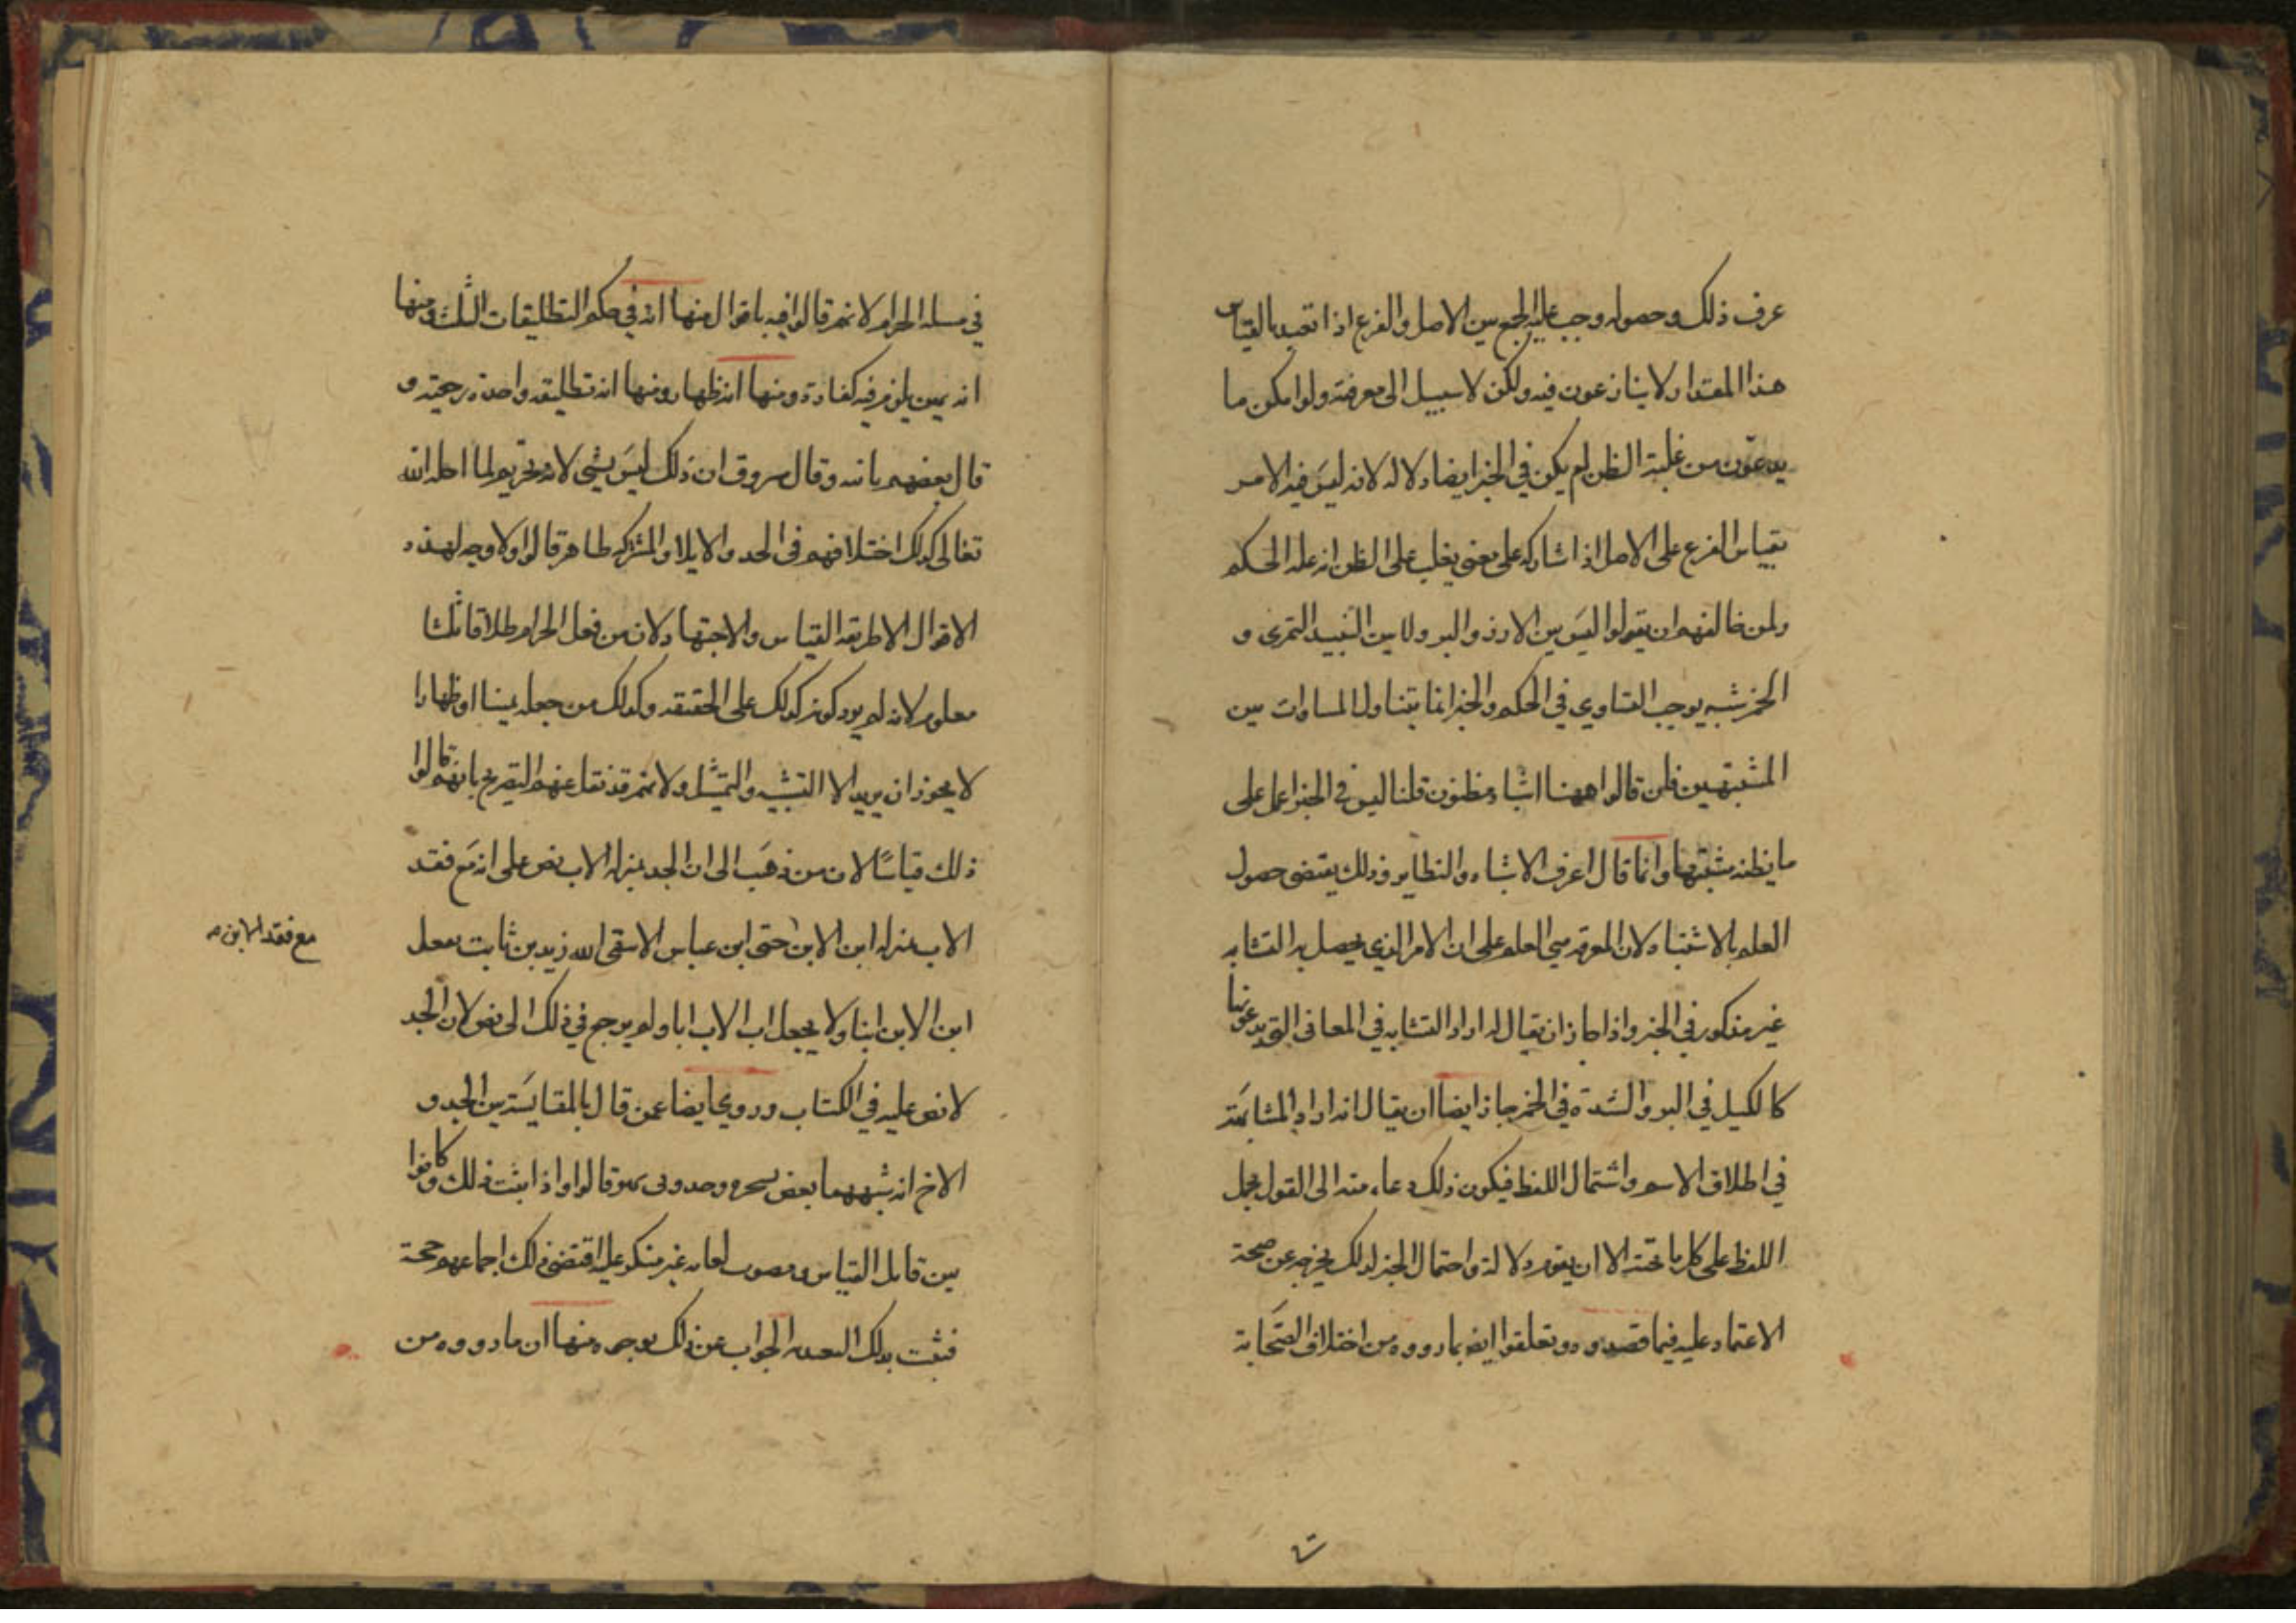 عرف ذلك وحصوله وجب عليه الجمع بين الاصل والفرع اذا تعبد بالقياس
هذا المقدار لا ينازعون فيه ولكن لا سبيل الى معرفته ولو امكن ما
يدعون من غلبة الظن لم يكن في الخبر ايضا دلاله لانه ليس فيه الامر
بقياس الفرع على الاصل اذا شاركه على معنى يغلب على الظن انه علة الحكم
ولمن خالفهم ان يقولوا ليس بين الارز والبر ولا بين النبيذ التمرى و
الخمر شبه يوجب التساوي في الحكم والخبر انما يتناول المساوات بين
المشتبهين فلن قالوا ههنا اشباه مظنون قلنا ليس في الخبر اعمل على
ما يظنه مشتبها وانما قال اعرف الاشباه والنظاير وذلك يقتضى حصول
العلم بالاشتباه لان المعرفه هي العلم على ان الامر الذي يحصل به التشابه
غير مذكور في الخبر واذا جاز ان يقال له اراد التشابه في المعانى التى يدعونها
كالكيل في البر والشدة في الخمر جاز ايضا ان يقال انه اراد المشابهة
في اطلاق الاسم واشتمال اللفظ فيكون ذلك دعاء منه الى القول بحمل
اللفظ على كل ما تحته الا ان يقوم دلالة واحتمال الخبر لذلك يخرجه عن صحة
الاعتماد عليه فيما قصدوه وتعلقوا ايضا بما رووه من اختلاف الصحابة
في مسلة الحرام لانهم قالوا فيه باقوال منها انه في حكم التطليقات الثلث ومنها
انه يمين يلزم فيه كفارة ومنها انه ظهار ومنها انه تطليقه واحدة رجعية و
قال بعضهم باينه وقال مسروق ان ذلك ليس بشى لانه تحريم لما احله الله
تعالى كذلك اختلافهم فى الحد والايلا والمشتركه ظاهر قالوا ولا وجه لهذه
الاقوال الا طريقة القياس والاجتهاد لان من جعل الحرام طلاقا ثلثا
معلوم لانه لم يرد كونه كذلك على الحقيقة وكذلك من جعله يمينا او ظهارا
لا يجوز ان يريد الا التشبيه والتمثيل ولانهم قد نقل عنهم التصريح بانهم قالوا
ذلك قياسًا لان من ذهب الى ان الجد بمنزلة الاب نص على انه مع فقد
الاب بمنزله ابن الابن حتى ابن عباس الا يتقى الله زيد بن ثابت يجعل
مع فقد الابن
ابن الابن ابنا ولا يجعل اب الاب ابا ولم يرجع في ذلك الى نص لان الجد
لا نص عليه في الكتاب وروي ايضا عمن قال بالمقايسة بين الجد و
الاخ انه شبههما بغصنى شجره وجدولى نهر وقالوا واذا ثبت ذلك وكانوا
بين قايل القياس ومصوب لقايله غير منكر عليه اقتضى ذلك اجماعهم حجة
فثبت بذلك التعبد الجواب عن ذلك بوجوه منها ان ما رووه من